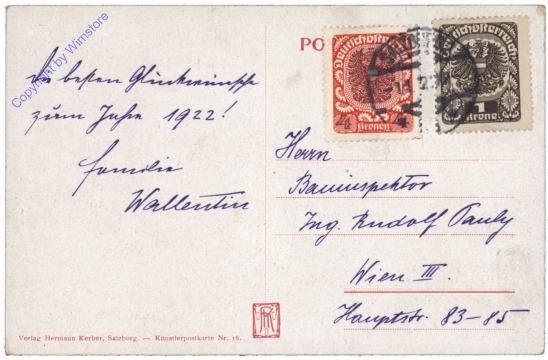 Copyright by Wimstore
Die besten Glückwünsche
zum Jahre 1922!
Familie
Wallentin
PO
Deutschösterreich
4 Kronen 4
Deutschösterreich
1
Krone
Herrn
Bauinspektor
Ing. Rudolf Pauly
Wien III.
Hauptstr. 83-85
Verlag Hermann Kerber, Salzburg. — Künstlerpostkarte Nr. 18.